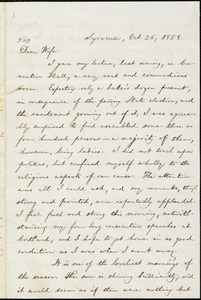 Syracuse, Oct. 26, 1858.
Dear Wife,
I gave my lecture, last evening, in
a very neat and commodious
room. Expecting only a baker's dozen present,
in consequence of the pending State election, and
the excitement growing out of it, I was
surprised to find assembled some three or
four hundred persons — a majority of them,
however, being ladies. I did not touch upon
politics, but confined myself wholly to the
religious aspects of our cause. The attention
was all I could ask, and my remarks, though
strong and pointed, were repeatedly applauded.
I feel fresh and strong this morning, notwith-
standing my four long consecutive speeches at
Cortland, and I hope to get home in as good
condition as I was when I went away.
It is one of the loveliest mornings of
the season. The sun is shining brilliantly, and it
would seem as if there was nothing but